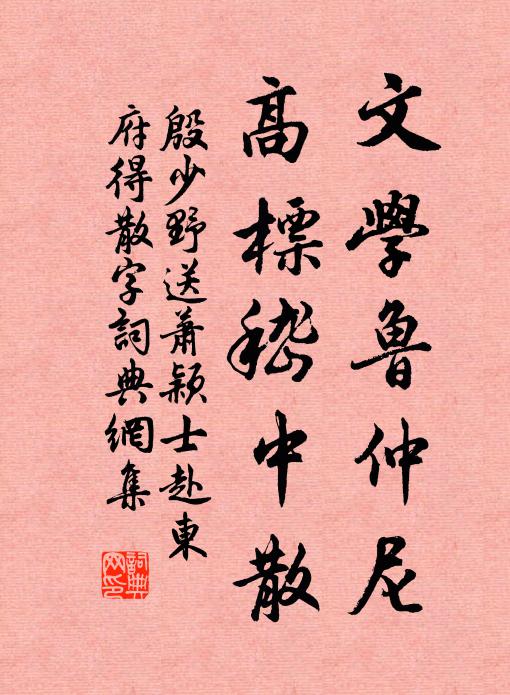 文學魯仲尼
高標嵇中散
殷少野送蕭穎士赴東
府得散字詞典網集
詞典网印